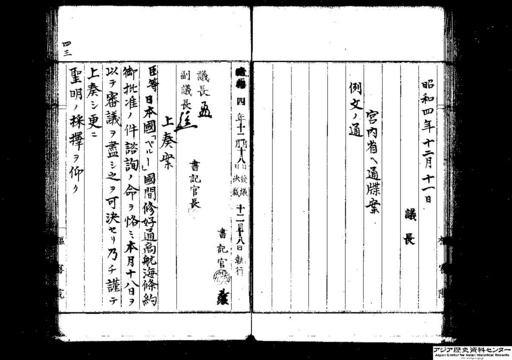 昭和四年十二月十一日
議長
宮内省ヘ通牒案
例文ノ通
昭和四年十二月十八日決議 十二月十八日執行
議長
副議長
書記官長
書記官
上奏案
臣等日本國「ペルー」國間修好通商航海條約
御批准ノ件諮詢ノ命ヲ恪ミ本月十八日ヲ
以テ審議ヲ盡シ之ヲ可決セリ乃チ謹テ
上奏シ更ニ
聖明ノ採擇ヲ仰ク
四三
アジア歴史資料センター
Japan Center for Asian Historical Records